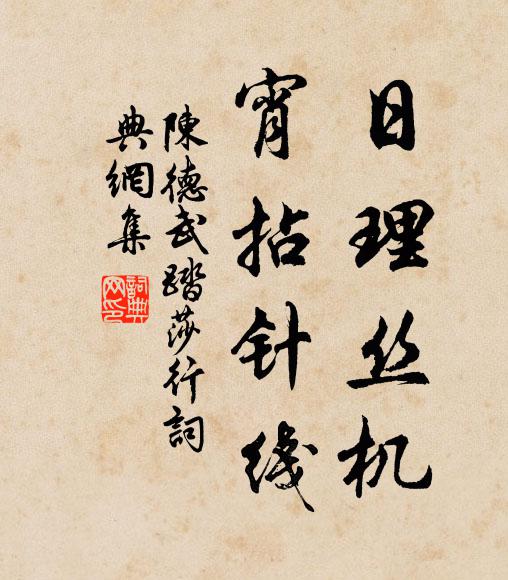 日理丝机
宵拈针线
陳德武踏莎行詞
典網集
詞典
网印